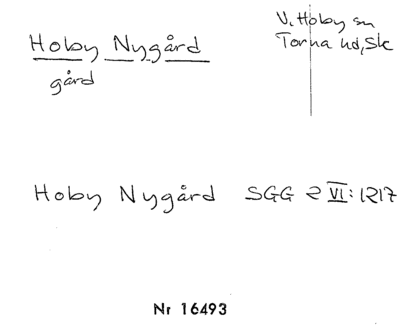 Hoby Nygård
gård
V. Hoby sn
Torna hd, Sk
Hoby Nygård SGG 2 VI: 1217
Nr 16493